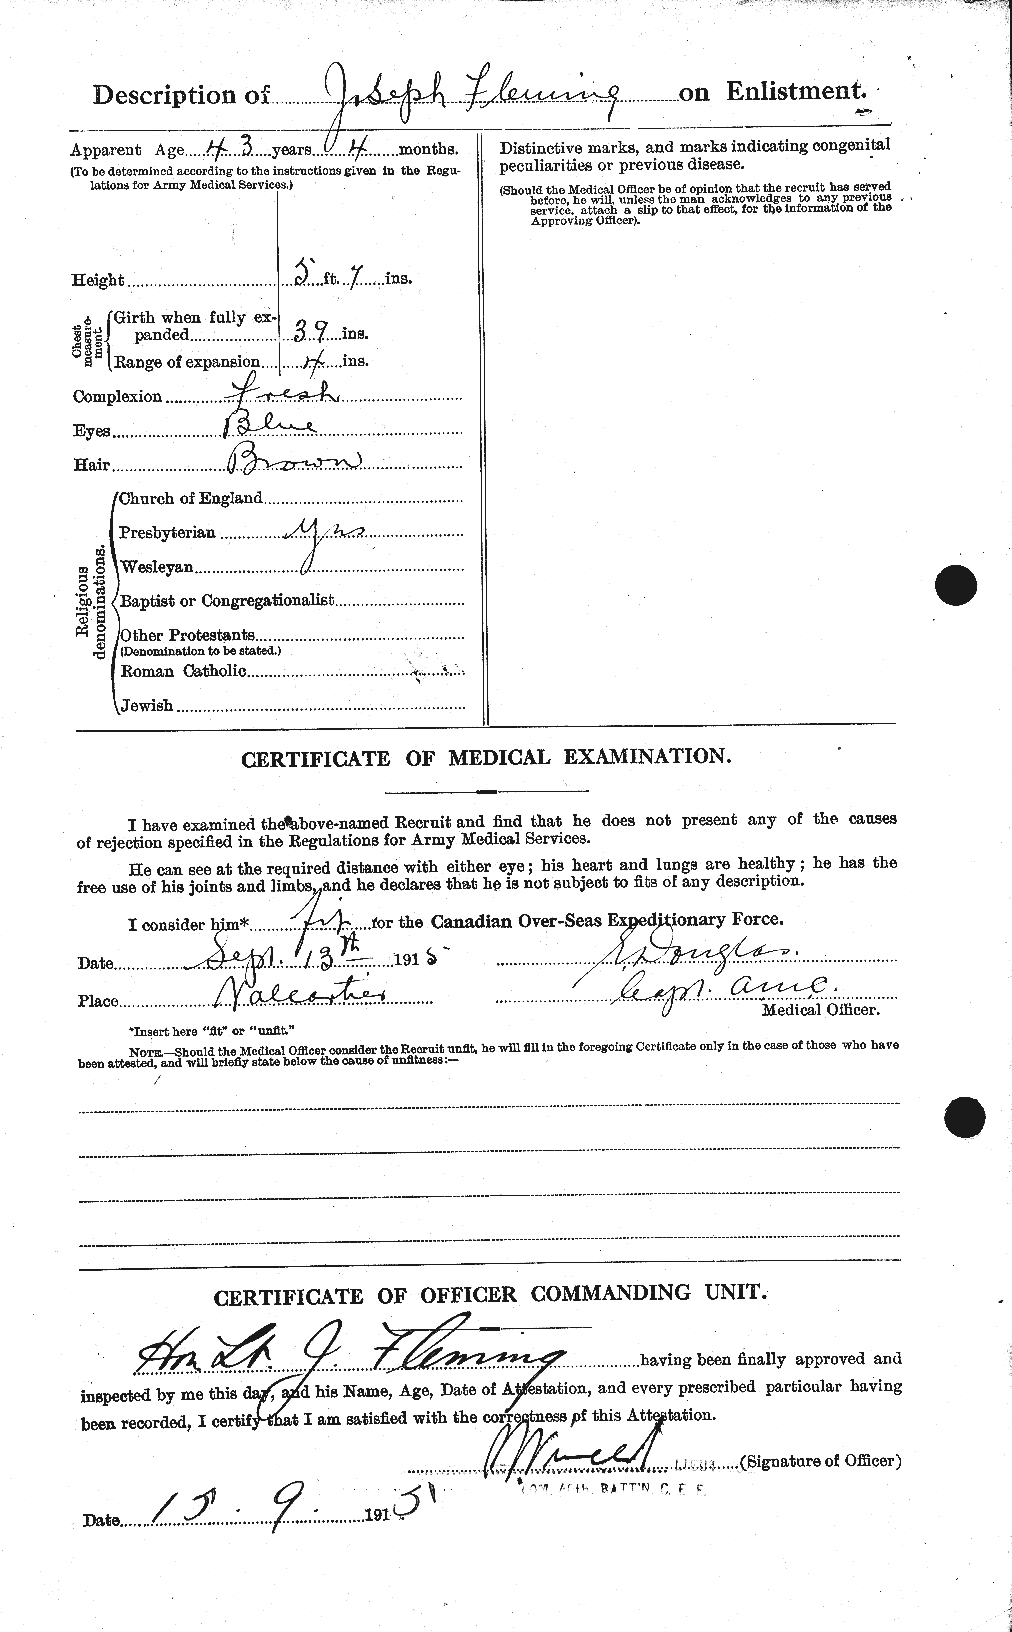 Description of Joseph Fleming on Enlistment.
Apparent Age 43 years 4 months.
(To be determined according to the instructions given in the Regu-
lations for Army Medical Services.)
Height 5 ft. 7 ins.
Chest measure-ment
Girth when fully ex-
panded 39 ins.
Range of expansion 4 ins.
Complexion fresh
Eyes Blue
Hair Brown
Religious denominations.
Church of England
Presbyterian Yes
Wesleyan
Baptist or Congregationalist
Other Protestants
(Denomination to be stated.)
Roman Catholic
Jewish
Distinctive marks, and marks indicating congenital
peculiarities or previous disease.
(Should the Medical Officer be of opinion that the recruit has served
before, he will, unless the man acknowledges to any previous
service, attach a slip to that effect, for the information of the
Approving Officer).
CERTIFICATE OF MEDICAL EXAMINATION.
I have examined the above-named Recruit and find that he does not present any of the causes
of rejection specified in the Regulations for Army Medical Services.
He can see at the required distance with either eye; his heart and lungs are healthy; he has the
free use of his joints and limbs, and he declares that he is not subject to fits of any description.
I consider him* fit for the Canadian Over-Seas Expeditionary Force.
Date Sept. 13th 1915 Douglas.
Place Valcartier Capt. A.M.C.
Medical Officer.
*Insert here "fit" or "unfit."
NOTE.—Should the Medical Officer consider the Recruit unfit, he will fill in the foregoing Certificate only in the case of those who have
been attested, and will briefly state below the cause of unfitness:—
CERTIFICATE OF OFFICER COMMANDING UNIT.
Hon Lt. J. Fleming having been finally approved and
inspected by me this day, and his Name, Age, Date of Attestation, and every prescribed particular having
been recorded, I certify that I am satisfied with the correctness of this Attestation.
(Signature of Officer)
BATT'N C. E. F.
Date 15.9. 1915